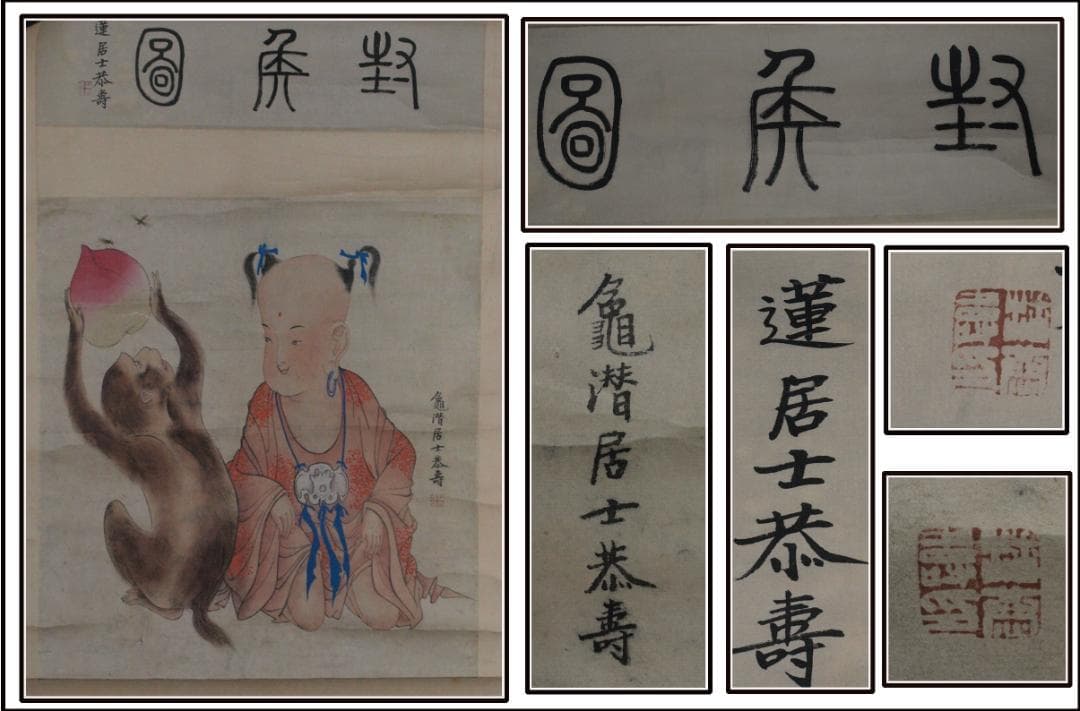 封侯圖
蓮居士恭壽
龜潜居士恭壽
封侯圖
龜潜居士恭壽
蓮居士恭壽